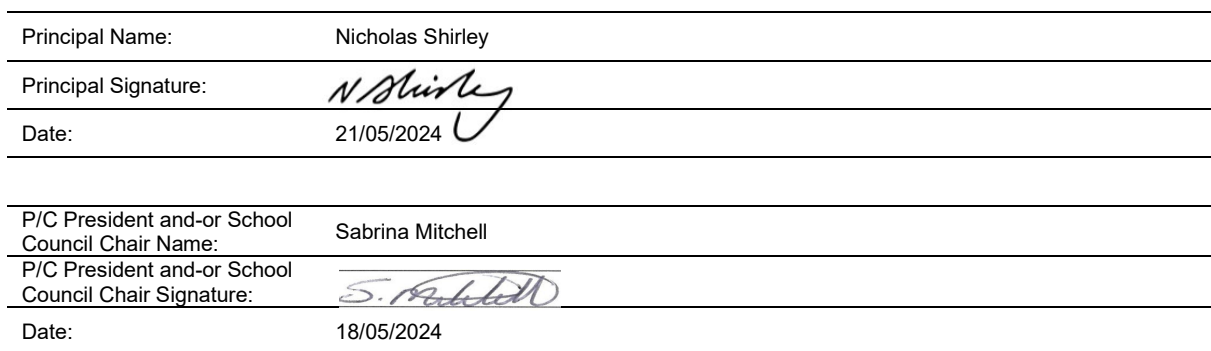 Principal Name: Nicholas Shirley
Principal Signature: N Shirley
Date: 21/05/2024
P/C President and-or School
Council Chair Name: Sabrina Mitchell
P/C President and-or School
Council Chair Signature: S. Mitchell
Date: 18/05/2024